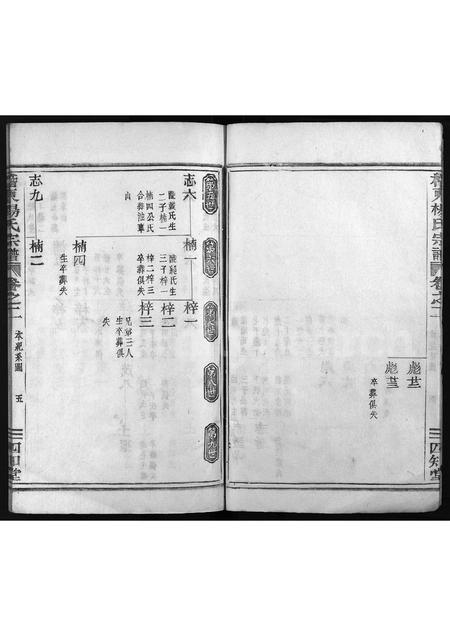 楊氏宗譜
卷之二
彪
彪
卒葬俱失
四知堂
第五世
第六世
第七世
第八世
第九世
志六
氏生
二子楠一
楠四公氏
合葬
楠一
氏生
三子梓一
梓二梓三
卒葬俱失
梓一
梓二
梓三
兄弟三人
生卒葬俱
失
楠四
生卒葬失
志九
楠二
楊氏宗譜
卷之二
系圖
五
四知堂